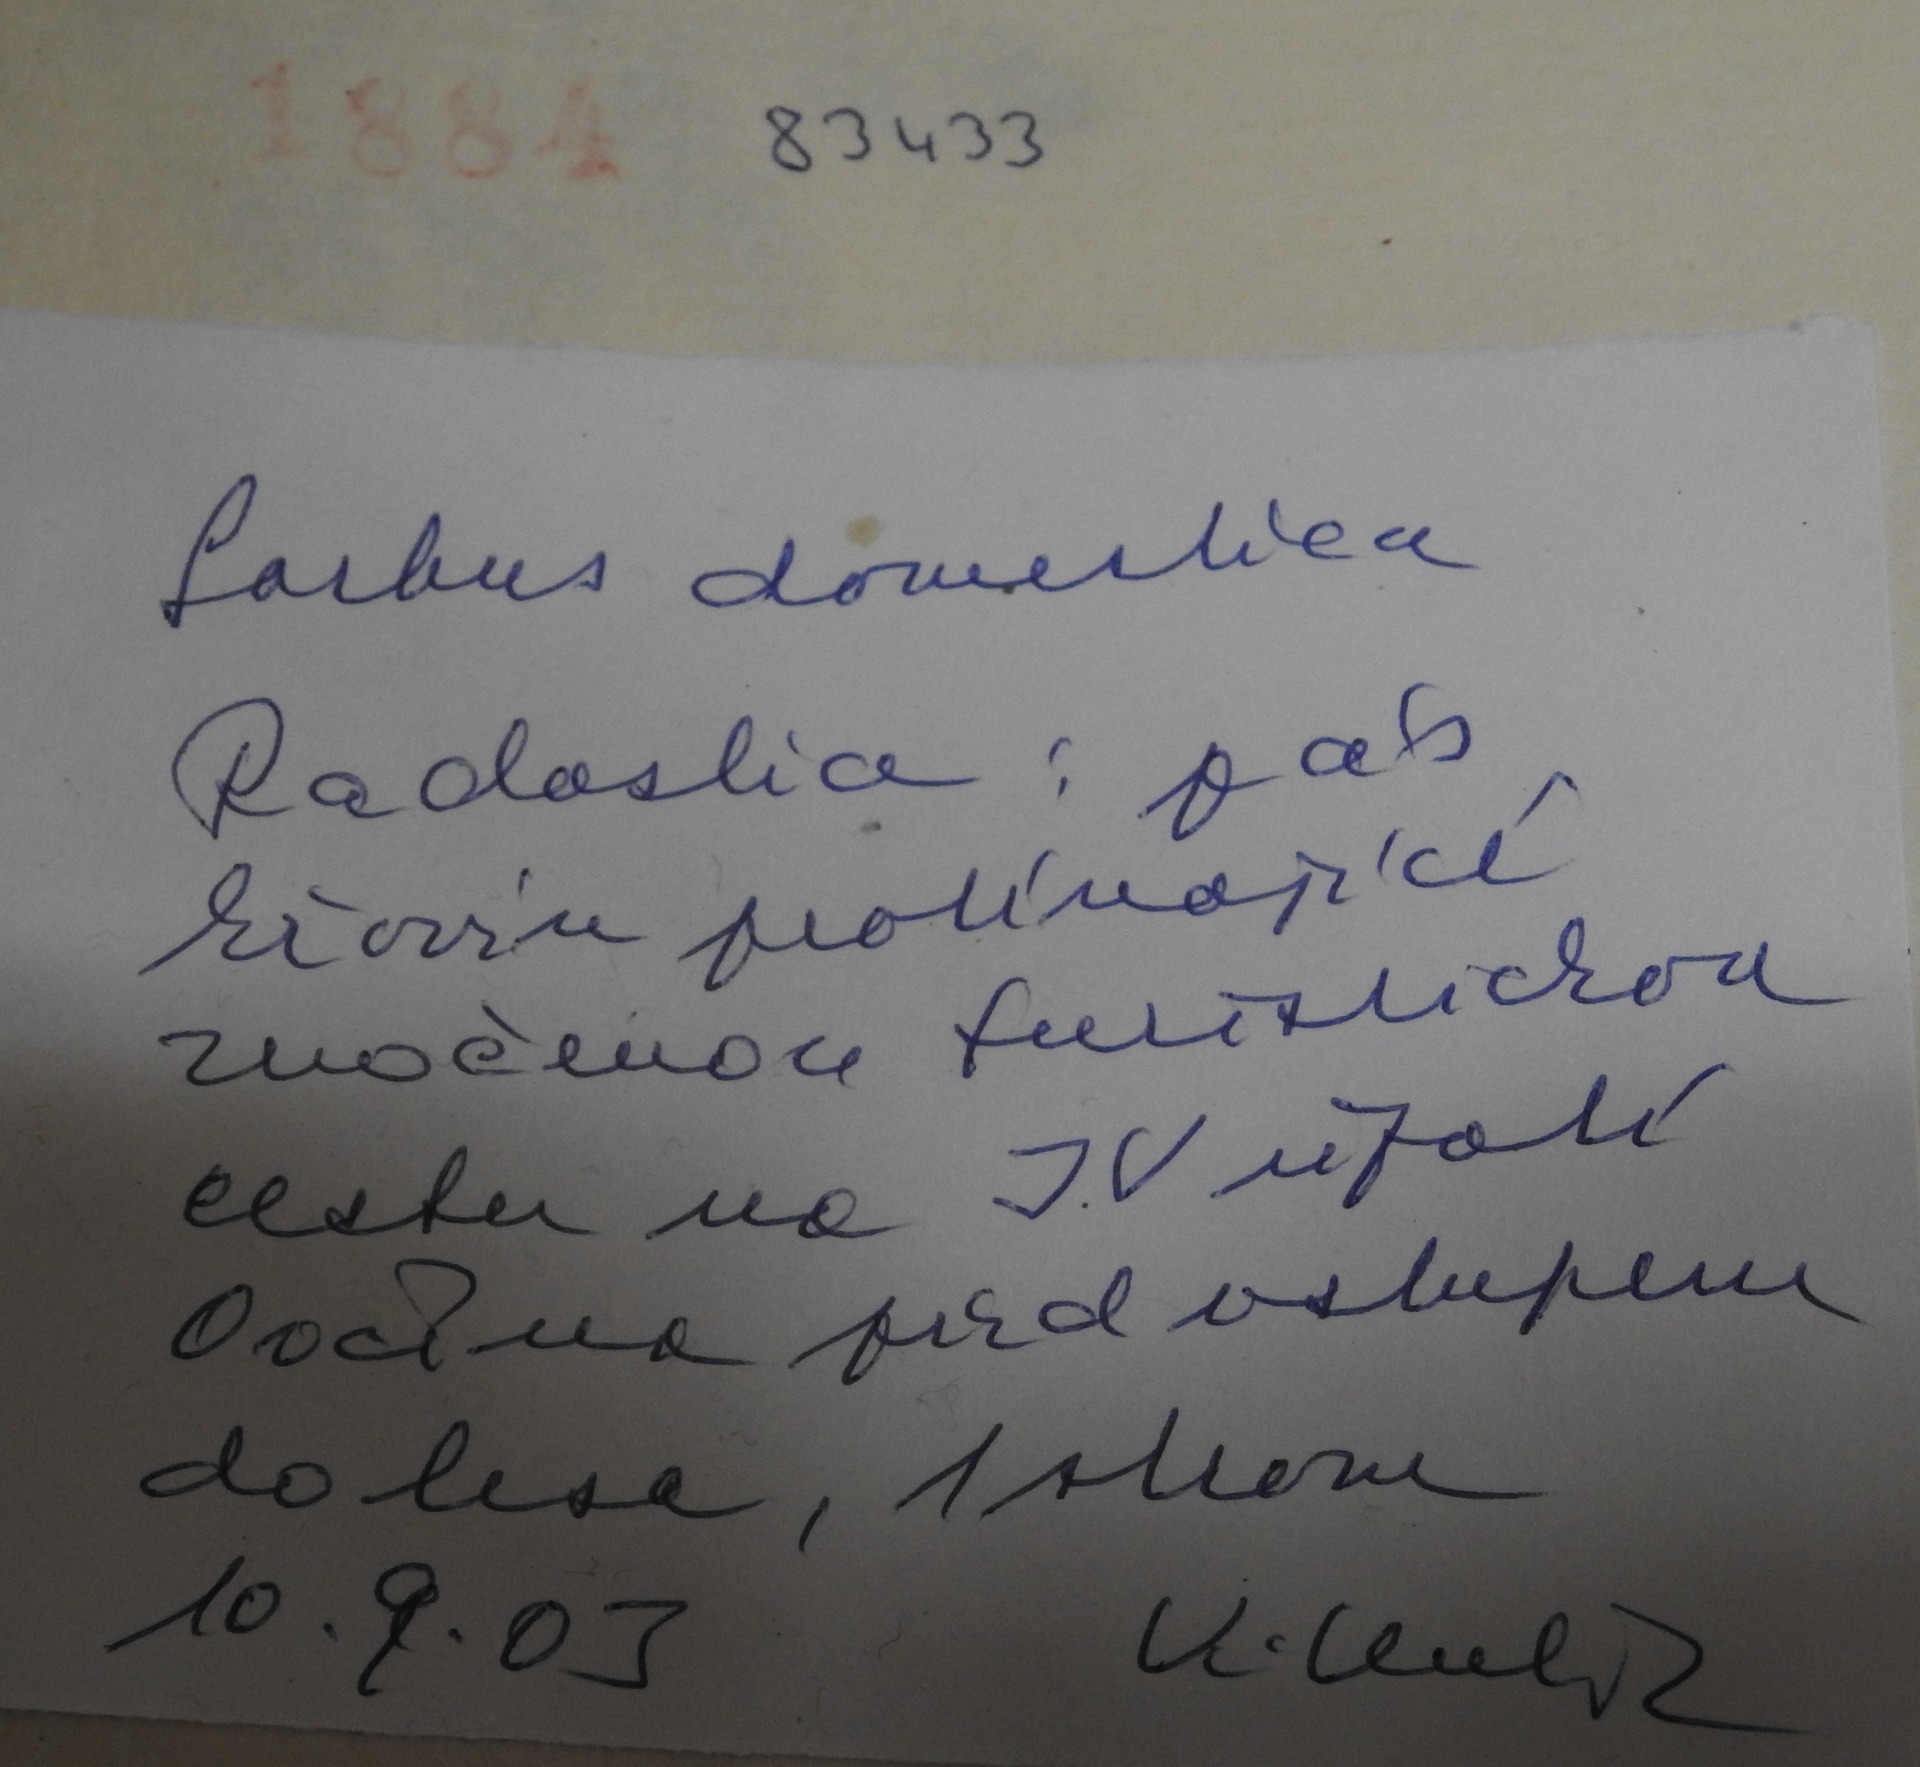 1884 83433
Sorbus domestica
Radostice : pás
křovin protínající
značenou turistickou
cestu na JV úpatí
před vstupem
do lesa, 1 strom
10.9.03 K.